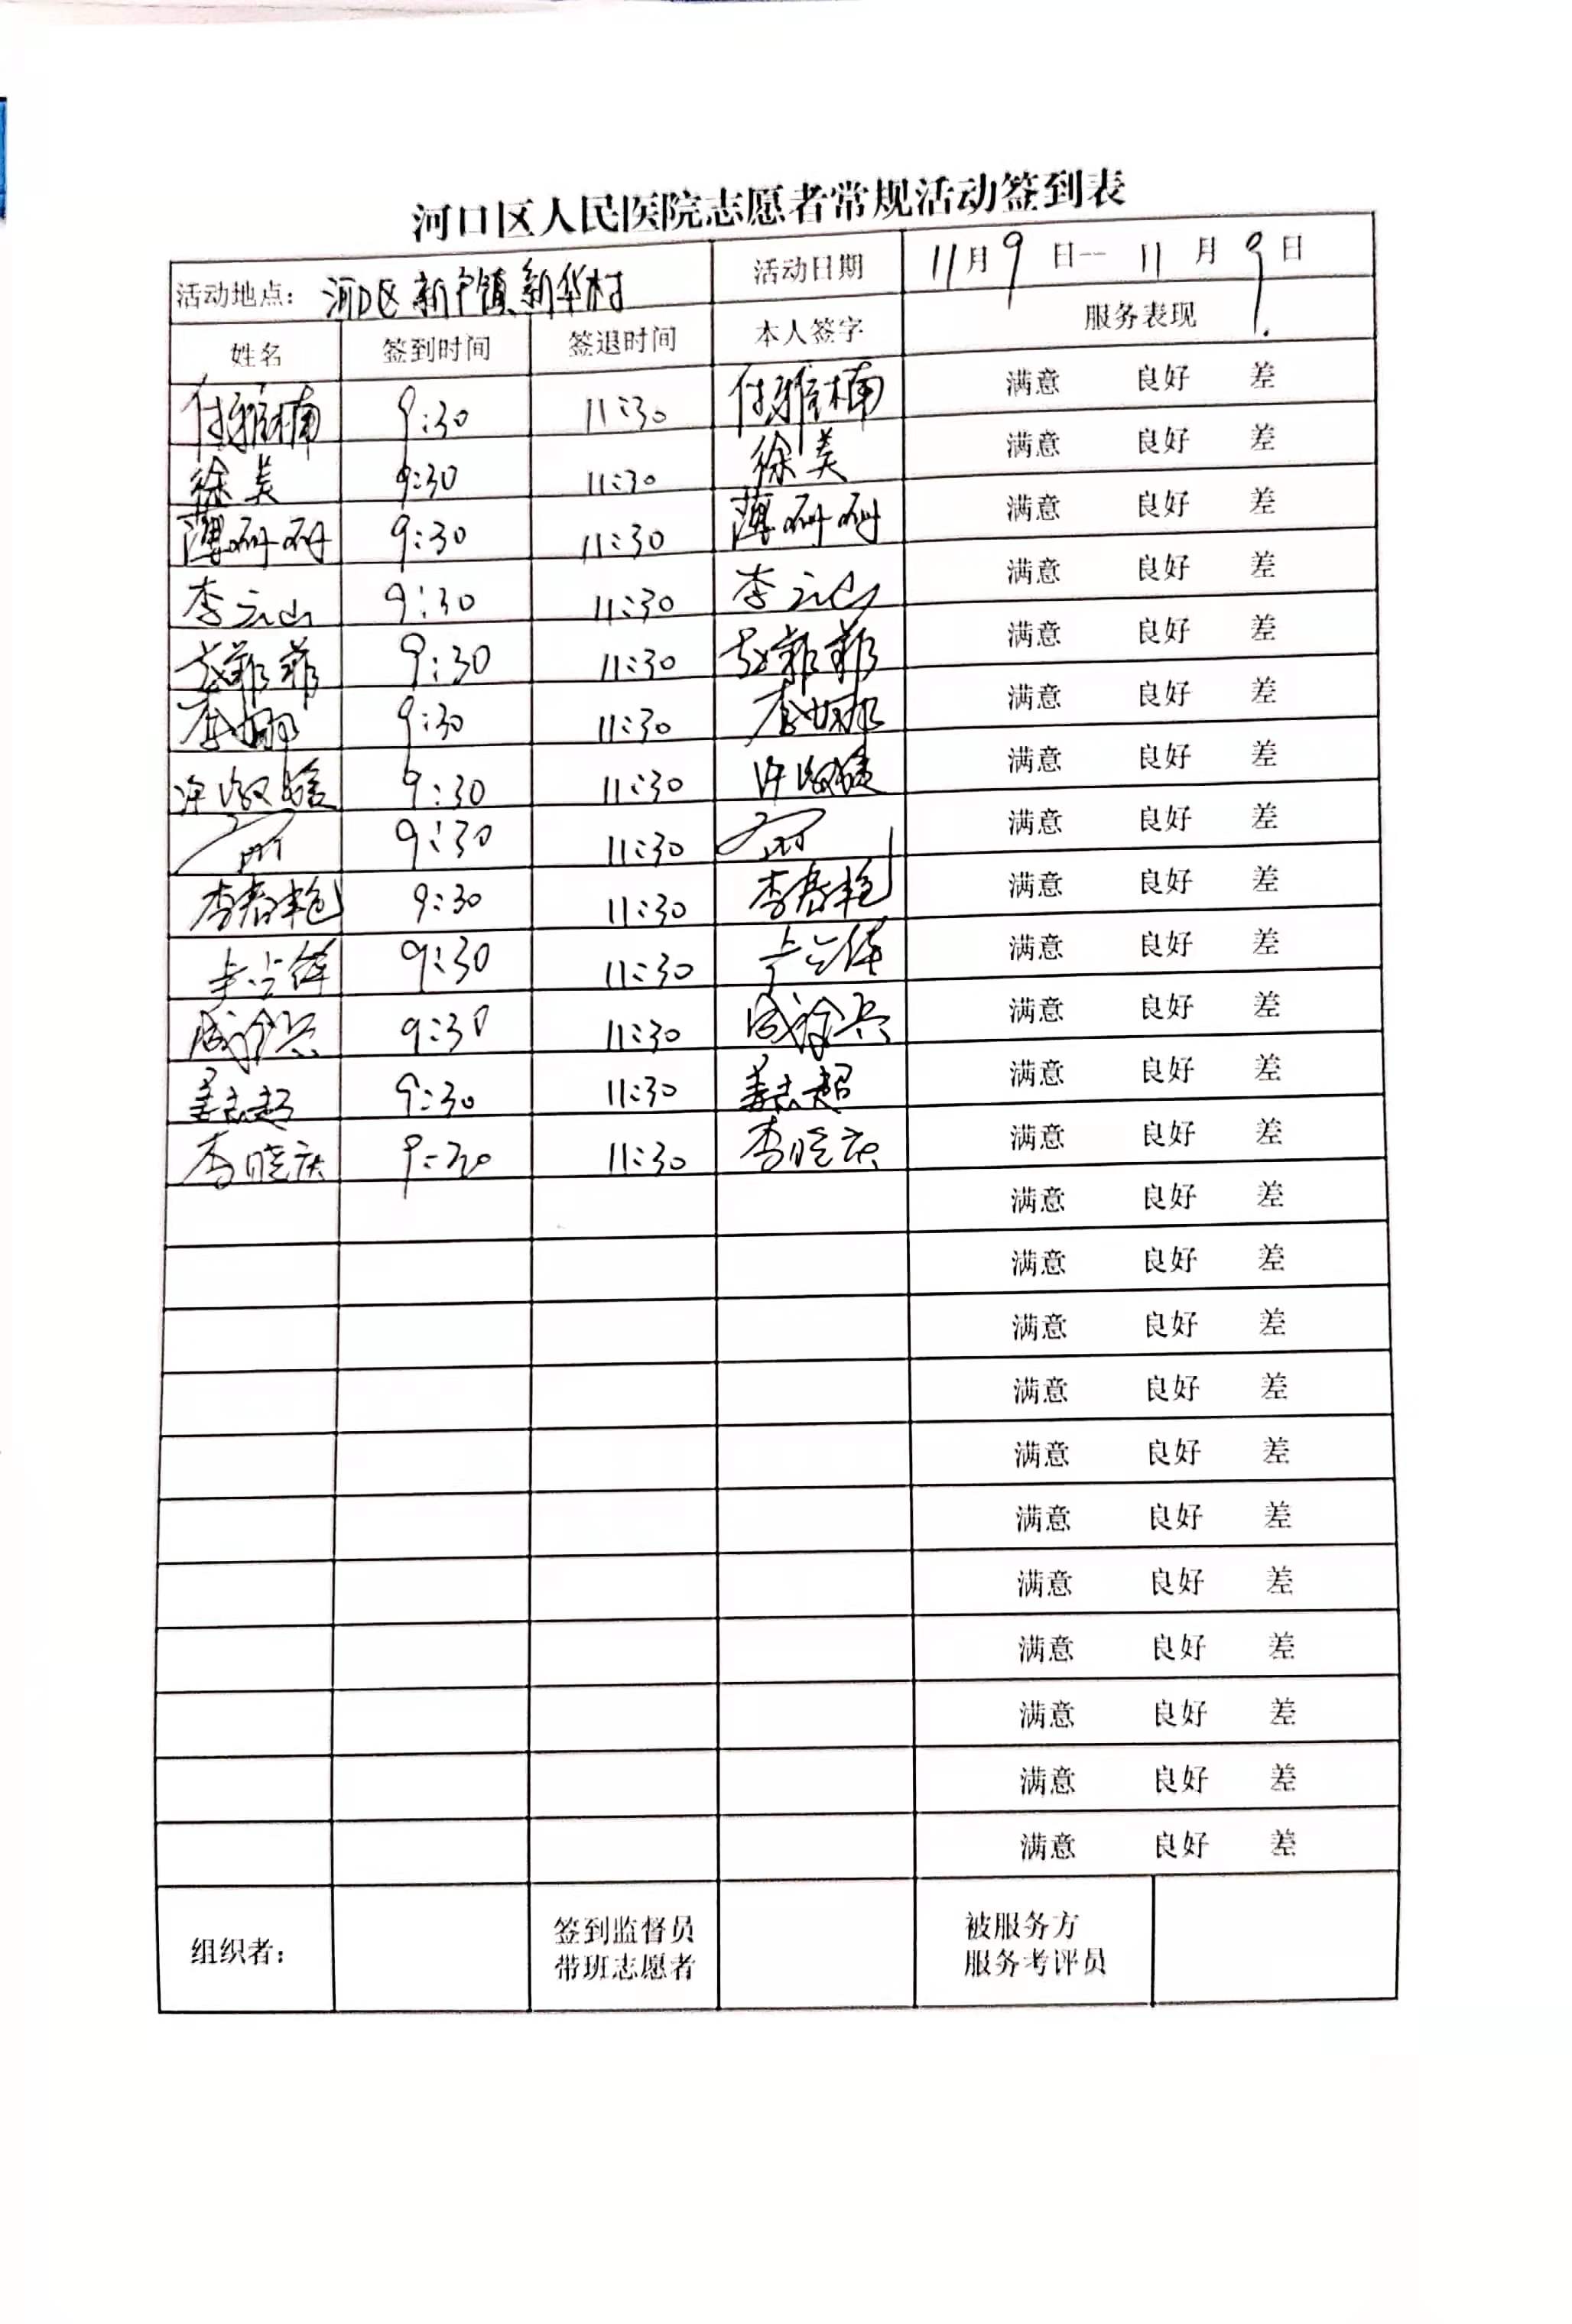 河口区人民医院志愿者常规活动签到表
活动地点： 河口区新户镇新华村 活动日期 11月9日—11月9日
姓名 签到时间 签退时间 本人签字 服务表现
付雅楠 9:30 11:30 付雅楠 满意 良好 差
徐美 9:30 11:30 徐美 满意 良好 差
薄珊珊 9:30 11:30 薄珊珊 满意 良好 差
李云山 9:30 11:30 李云山 满意 良好 差
赵菲菲 9:30 11:30 赵菲菲 满意 良好 差
李娜 9:30 11:30 李娜 满意 良好 差
许 9:30 11:30 许 满意 良好 差
9:30 11:30 满意 良好 差
李春艳 9:30 11:30 李春艳 满意 良好 差
9:30 11:30 满意 良好 差
9:30 11:30 满意 良好 差
姜志超 9:30 11:30 姜志超 满意 良好 差
李晓庆 9:30 11:30 李晓庆 满意 良好 差
满意 良好 差
满意 良好 差
满意 良好 差
满意 良好 差
满意 良好 差
满意 良好 差
满意 良好 差
满意 良好 差
满意 良好 差
满意 良好 差
满意 良好 差
组织者： 签到监督员 被服务方
带班志愿者 服务考评员